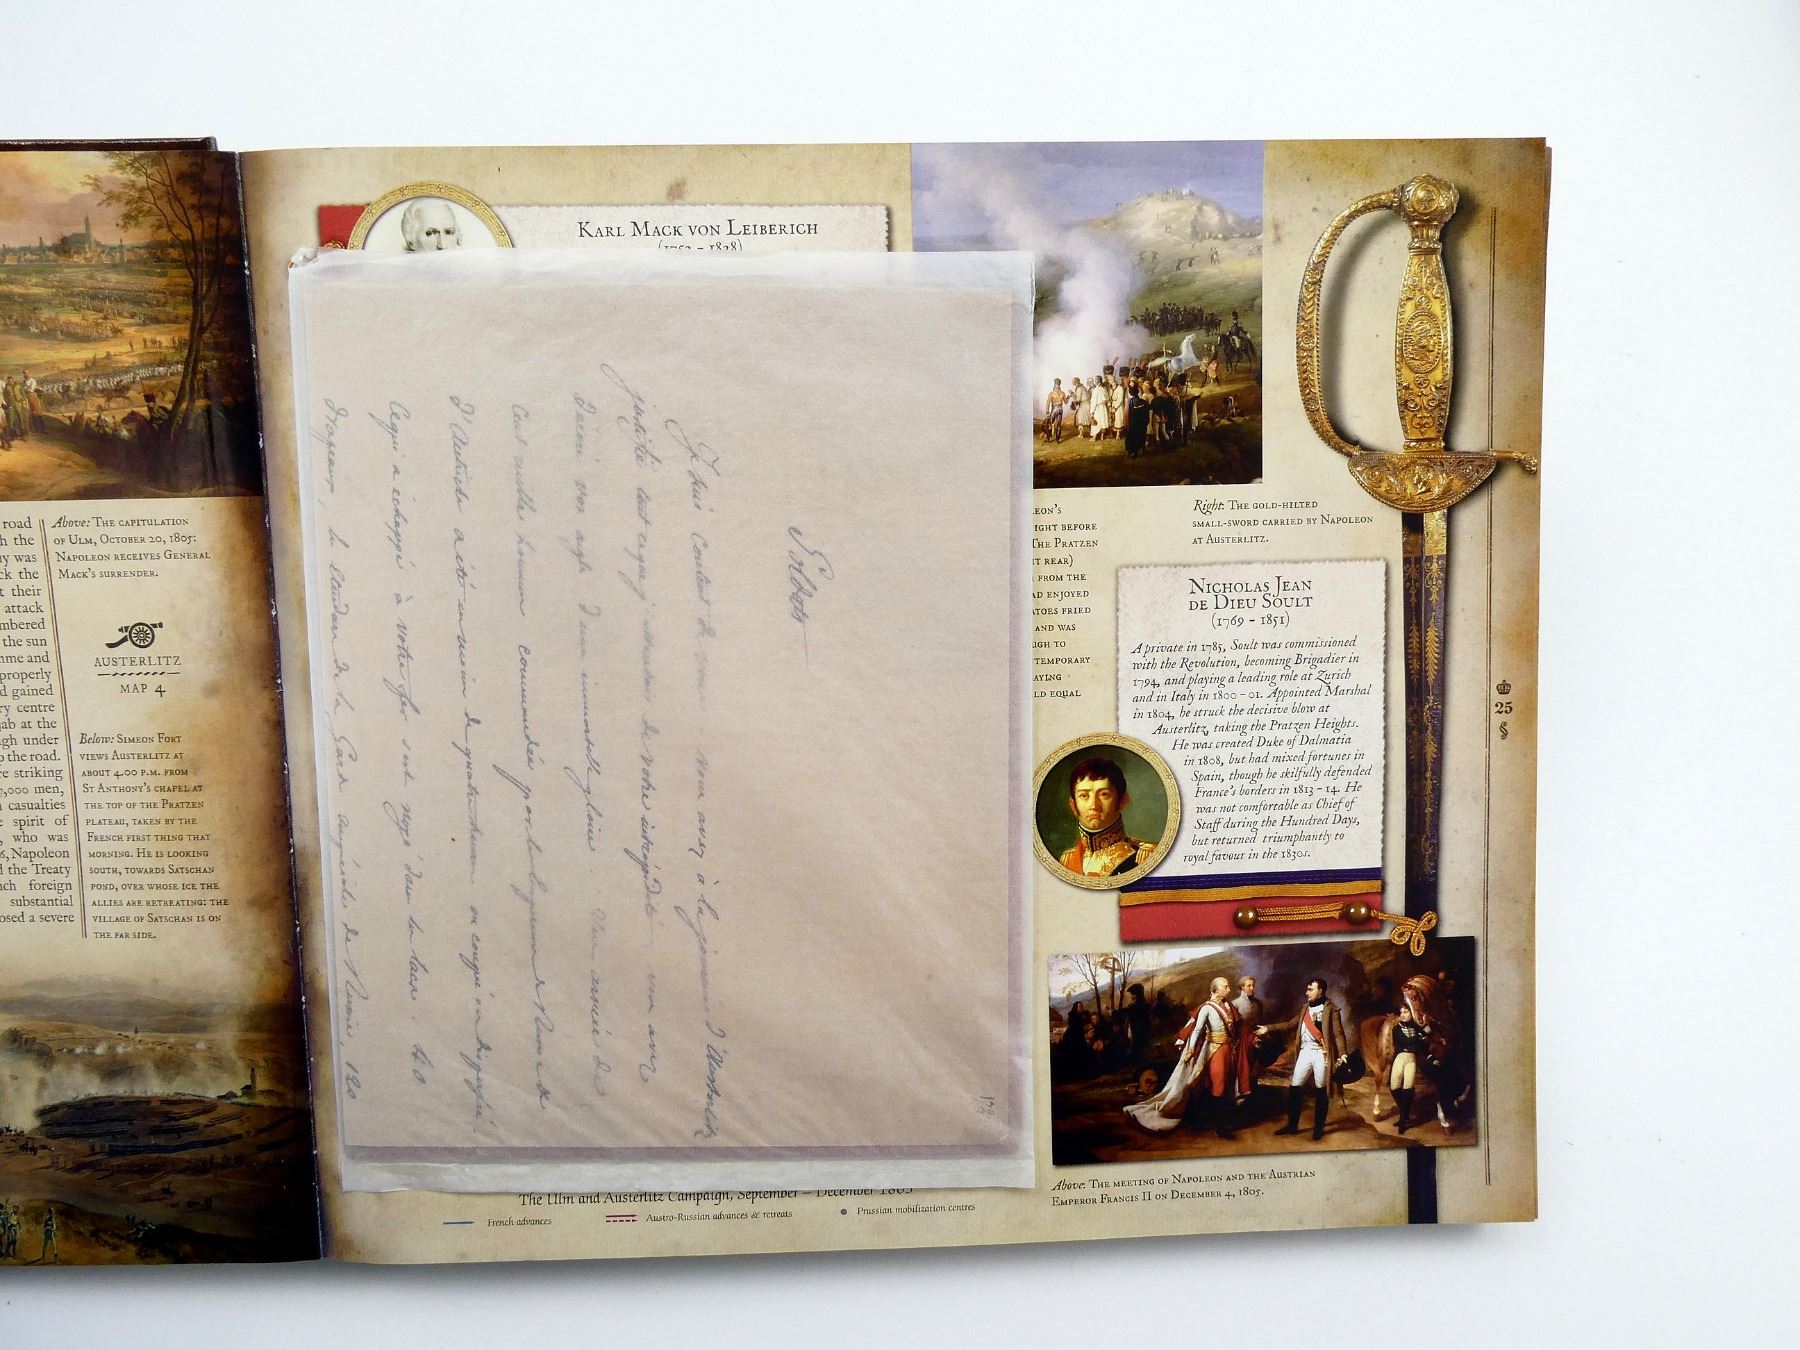 road
h the
y was
ck the
t their
attack
mbered
the sun
me and
properly
d gained
ry centre
ab at the
gh under
o the road.
re striking
7,000 men,
n casualties
e spirit of
, who was
6, Napoleon
d the Treaty
nch foreign
substantial
osed a severe
Above: The capitulation
of Ulm, October 20, 1805:
Napoleon receives General
Mack's surrender.
AUSTERLITZ
MAP 4
Below: Simeon Fort
views Austerlitz at
about 4.00 p.m. from
St Anthony's chapel at
the top of the Pratzen
plateau, taken by the
French first thing that
morning. He is looking
south, towards Satschan
pond, over whose ice the
allies are retreating: the
village of Satschan is on
the far side.
Karl Mack von Leiberich
(1752 – 1828)
172
Soldats
Je suis content de vous vous avez à la journée d'Austerlitz
justifié tout ce que j'attendais de votre intrépidité vous avez
décoré vos aigles d'une immortelle gloire. Une armée de
Cent mille hommes commandée par les Empereurs de Russie et
d'Autriche a été en moins de quatre heures ou coupée ou dispersée;
Ce qui a échappé à votre fer s'est noyé dans les lacs. 40
drapeaux, les étendards de la Garde impériale de Russie, 120
The Ulm and Austerlitz Campaign, September – December 1805
French advances
Austro-Russian advances & retreats
Prussian mobilization centres
leon's
ight before
The Pratzen
t rear)
from the
ad enjoyed
toes fried
and was
ugh to
temporary
aying
ld equal
Right: The gold-hilted
small-sword carried by Napoleon
at Austerlitz.
Nicholas Jean
de Dieu Soult
(1769 – 1851)
A private in 1785, Soult was commissioned
with the Revolution, becoming Brigadier in
1794, and playing a leading role at Zurich
and in Italy in 1800 – 01. Appointed Marshal
in 1804, he struck the decisive blow at
Austerlitz, taking the Pratzen Heights.
He was created Duke of Dalmatia
in 1808, but had mixed fortunes in
Spain, though he skilfully defended
France's borders in 1813 – 14. He
was not comfortable as Chief of
Staff during the Hundred Days,
but returned triumphantly to
royal favour in the 1830s.
25
Above: The meeting of Napoleon and the Austrian
Emperor Francis II on December 4, 1805.